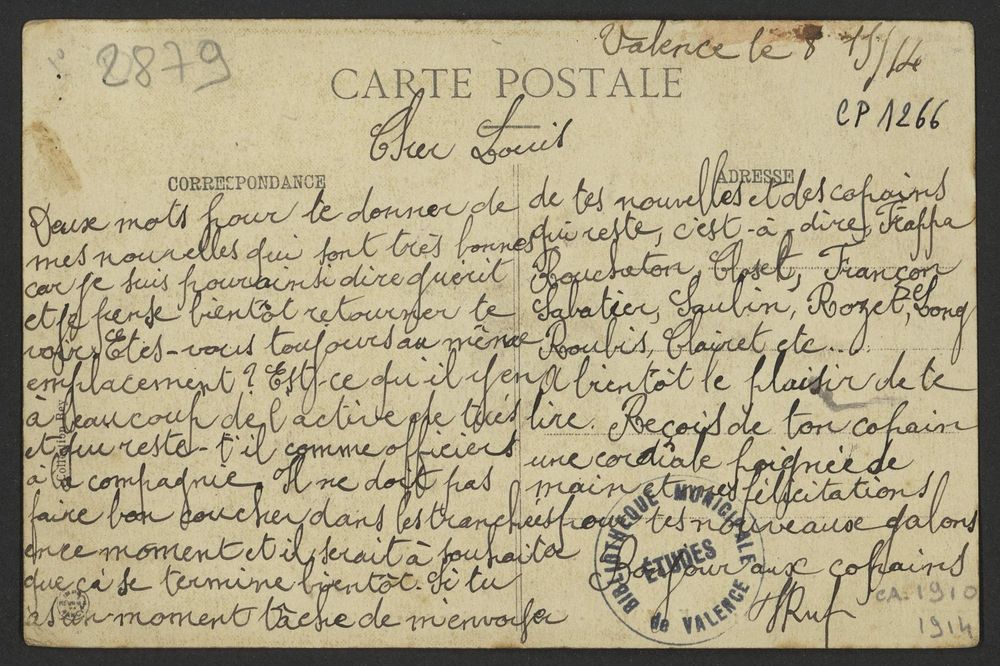 2879
Valence le 8 15/14
CARTE POSTALE
CP 1266
Cher Louis
CORRESPONDANCE
Deux mots pour te donner de
mes nouvelles qui sont très bonnes
car je suis pour ainsi dire guérit
et je pense bientôt retourner te
voir. Etes-vous toujours au même
emplacement ? Est-ce qu'il y en
à beaucoup de l'active de tués
et qui reste-t'il comme officiers
à la compagnie. Il ne doit pas
faire bon coucher dans les tranchées
en ce moment et il serait à souhaiter
que çà se termine bientôt. Si tu
as un moment tâche de m'envoyer
Collection Rey
ADRESSE
de tes nouvelles et des copains
qui reste, c'est-à-dire, Frappa
Boucheton, Closel, Françon
Sabatier, Saubin, Rozet, Long
Roubis, Clairet etc...
A bientôt le plaisir de te
lire. Reçois de ton copain
une cordiale poignée de
main et mes félicitations
pour tes nouveaux galons
Bonjour aux copains
HRuf
BIBLIOTHEQUE MUNICIPALE
ÉTUDES
de VALENCE
CA. 1910
1914